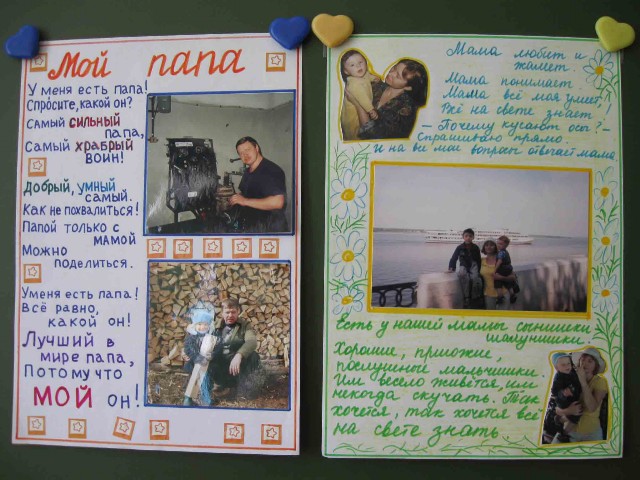 Мой папа
У меня есть папа!
Спросите, какой он?
Самый сильный
папа,
Самый храбрый
воин!
Добрый, умный
самый.
Как не похвалиться!
Папой только с
мамой
Можно
поделиться.
У меня есть папа!
Всё равно,
какой он!
Лучший в
мире папа,
Потому что
мой он!
Мама любит и
жалеет.
Мама понимает.
Мама всё моя умеет,
Всё на свете знает
– Почему кусают осы?–
Спрашиваю прямо.
И на все мои вопросы отвечает мама.
Есть у нашей мамы сынишки
шалунишки.
Хорошие, пригожие,
послушные мальчишки.
Им весело живётся, им
некогда скучать. Так
хочется, так хочется всё
на свете знать.